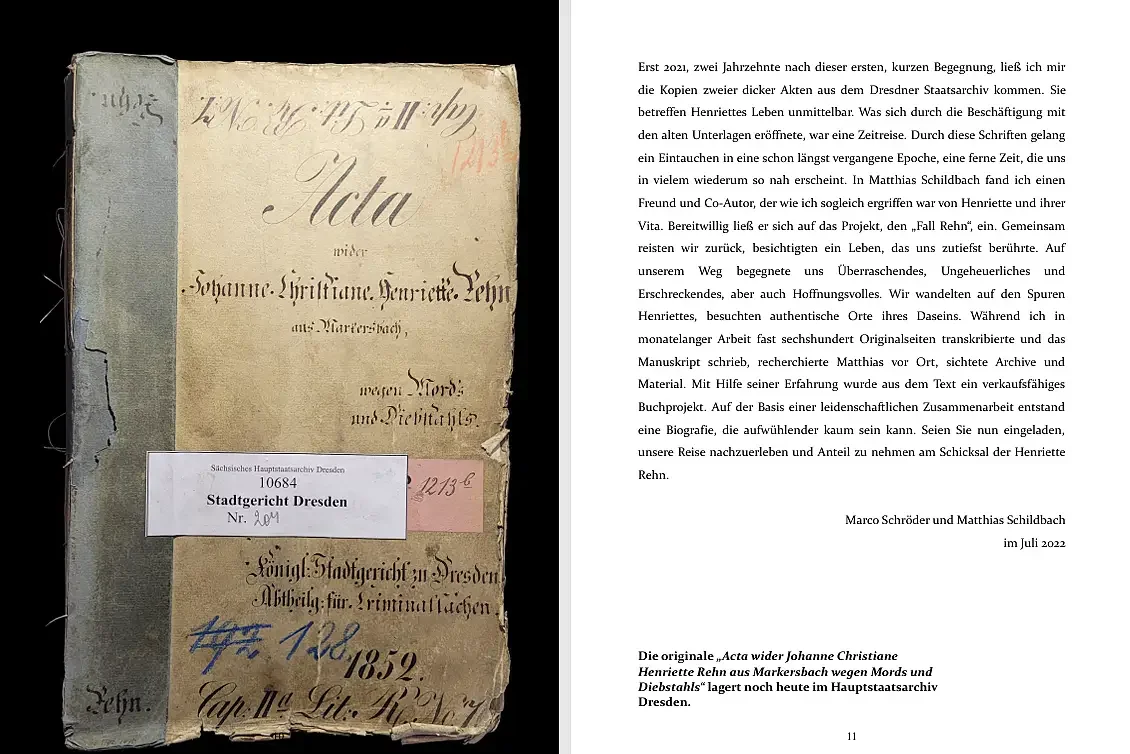 Rehn.
Cap: II a Lit: R. No 7.
1213 b
Acta
wider
Johanne Christiane Henriette Rehn
aus Markersbach,
wegen Mords
und Diebstahls.
Sächsisches Hauptstaatsarchiv Dresden
10684
Stadtgericht Dresden
Nr. 204
1213 b
Königl: Stadtgericht zu Dresden
Abtheilg: für Criminalsachen.
192 128
1852.
Rehn.
Cap: II a Lit: R. No 7
Erst 2021, zwei Jahrzehnte nach dieser ersten, kurzen Begegnung, ließ ich mir
die Kopien zweier dicker Akten aus dem Dresdner Staatsarchiv kommen. Sie
betreffen Henriettes Leben unmittelbar. Was sich durch die Beschäftigung mit
den alten Unterlagen eröffnete, war eine Zeitreise. Durch diese Schriften gelang
ein Eintauchen in eine schon längst vergangene Epoche, eine ferne Zeit, die uns
in vielem wiederum so nah erscheint. In Matthias Schildbach fand ich einen
Freund und Co-Autor, der wie ich sogleich ergriffen war von Henriette und ihrer
Vita. Bereitwillig ließ er sich auf das Projekt, den „Fall Rehn“, ein. Gemeinsam
reisten wir zurück, besichtigten ein Leben, das uns zutiefst berührte. Auf
unserem Weg begegnete uns Überraschendes, Ungeheuerliches und
Erschreckendes, aber auch Hoffnungsvolles. Wir wandelten auf den Spuren
Henriettes, besuchten authentische Orte ihres Daseins. Während ich in
monatelanger Arbeit fast sechshundert Originalseiten transkribierte und das
Manuskript schrieb, recherchierte Matthias vor Ort, sichtete Archive und
Material. Mit Hilfe seiner Erfahrung wurde aus dem Text ein verkaufsfähiges
Buchprojekt. Auf der Basis einer leidenschaftlichen Zusammenarbeit entstand
eine Biografie, die aufwühlender kaum sein kann. Seien Sie nun eingeladen,
unsere Reise nachzuerleben und Anteil zu nehmen am Schicksal der Henriette
Rehn.
Marco Schröder und Matthias Schildbach
im Juli 2022
Die originale „Acta wider Johanne Christiane
Henriette Rehn aus Markersbach wegen Mords und
Diebstahls“ lagert noch heute im Hauptstaatsarchiv
Dresden.
11